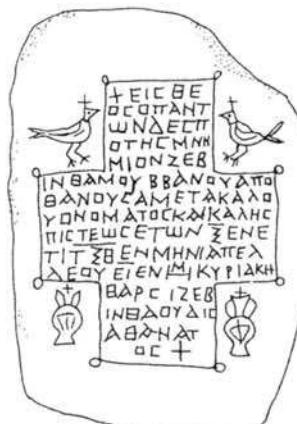 +ΕΙCΘΕ
ΟCΟΠΑΝΤ
ΩΝΔΕCΠ
ΟΤΗCΜΝΗ
ΜΙΟΝΖΕΒ
ΙΝΘΑΜΟΥΒΒΑΝΟΥΑΠΟ
ΘΑΝΟΥCΑΜΕΤΑΚΑΛΟ
ΥΟΝΟΜΑΤΟCΚΑΙΚΑΛΗC
ΠΙCΤΕΩCΕΤΩΝΞΕΝΕ
ΤΙΤΞΘΕΝΜΗΝΙΑΠΕΛ
ΛΕΟΥΕΙΕΝΙΜΙΚΥΡΙΑΚΗ
ΘΑΡCΙΖΕΒ
ΙΝΘΑΟΥΔΙC
ΑΘΑΝΑΤ
ΟC+